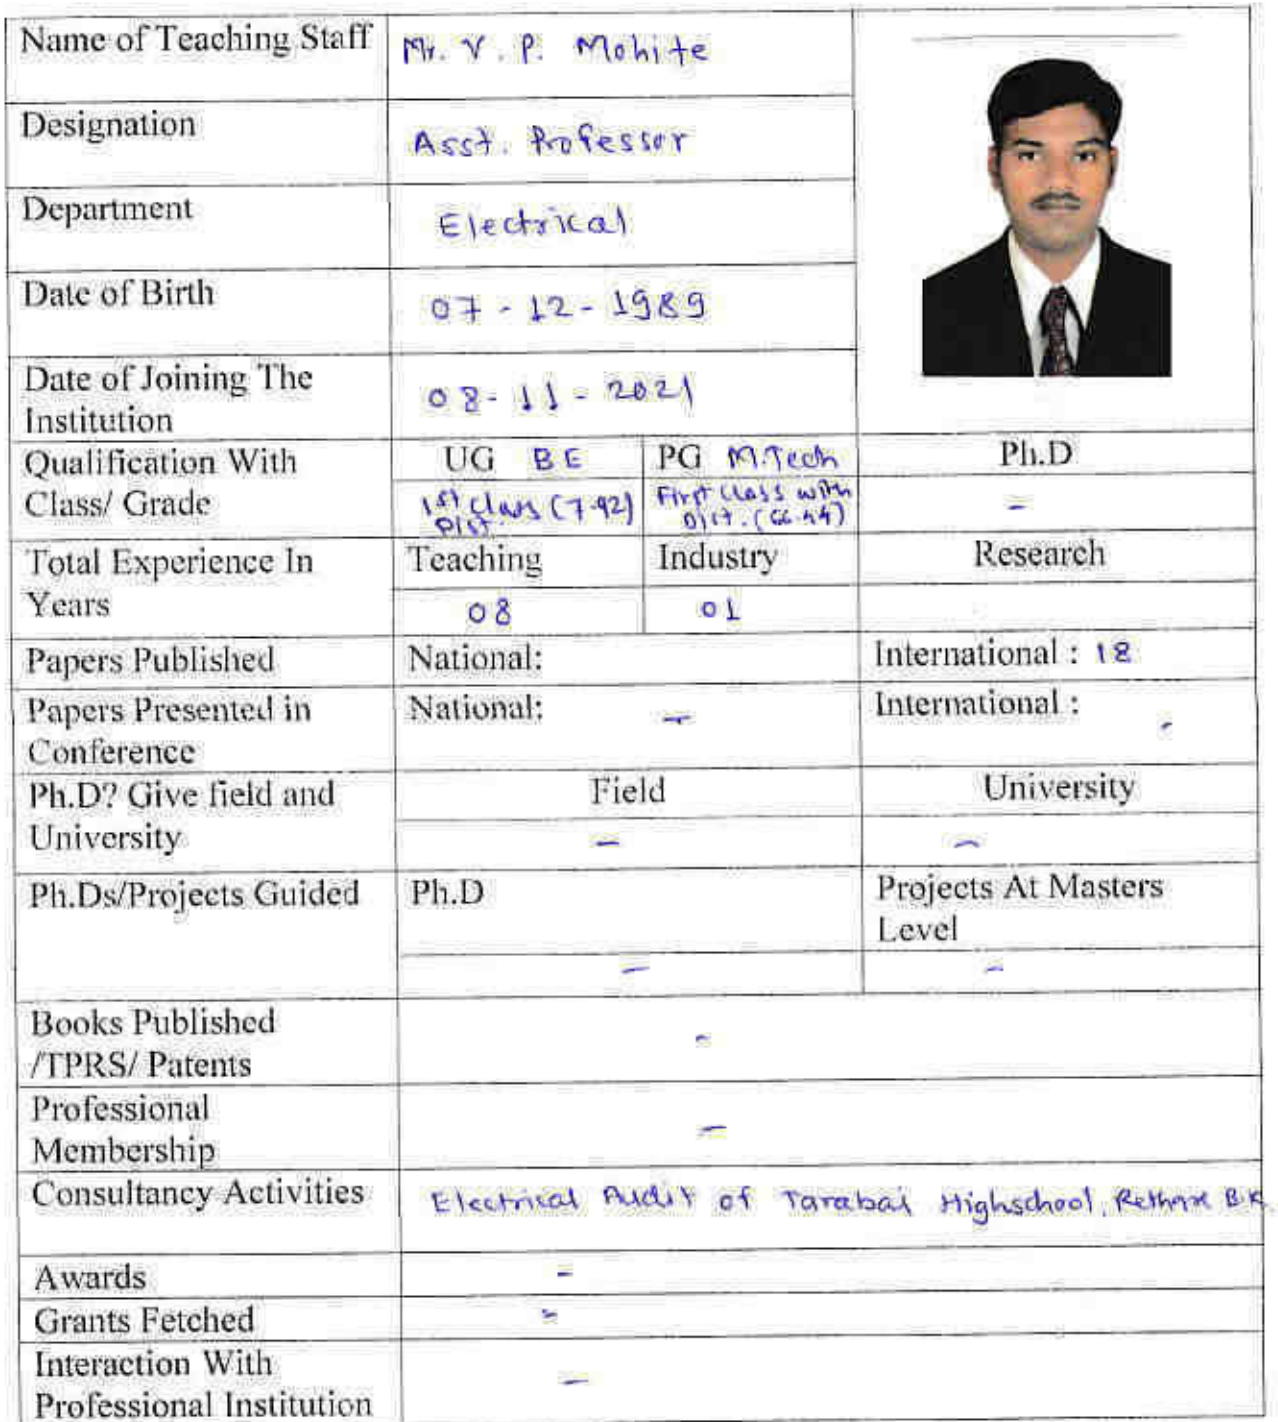 Name of Teaching Staff Mr. V. P. Mohite
Designation Asst. Professor
Department Electrical
Date of Birth 07-12-1989
Date of Joining The
Institution 08-11-2021
Qualification With
Class/ Grade
UG BE PG M.Tech Ph.D
1st Class (7.92)
Dist.
First Class with
Dist. (66.44)
-
Total Experience In
Years
Teaching Industry Research
08 01
Papers Published National: International : 18
Papers Presented in
Conference
National: - International : -
Ph.D? Give field and
University
Field University
- -
Ph.Ds/Projects Guided Ph.D Projects At Masters
Level
- -
Books Published
/TPRS/ Patents -
Professional
Membership -
Consultancy Activities Electrical Audit of Tarabai Highschool, Rethare B.K.
Awards -
Grants Fetched -
Interaction With
Professional Institution -